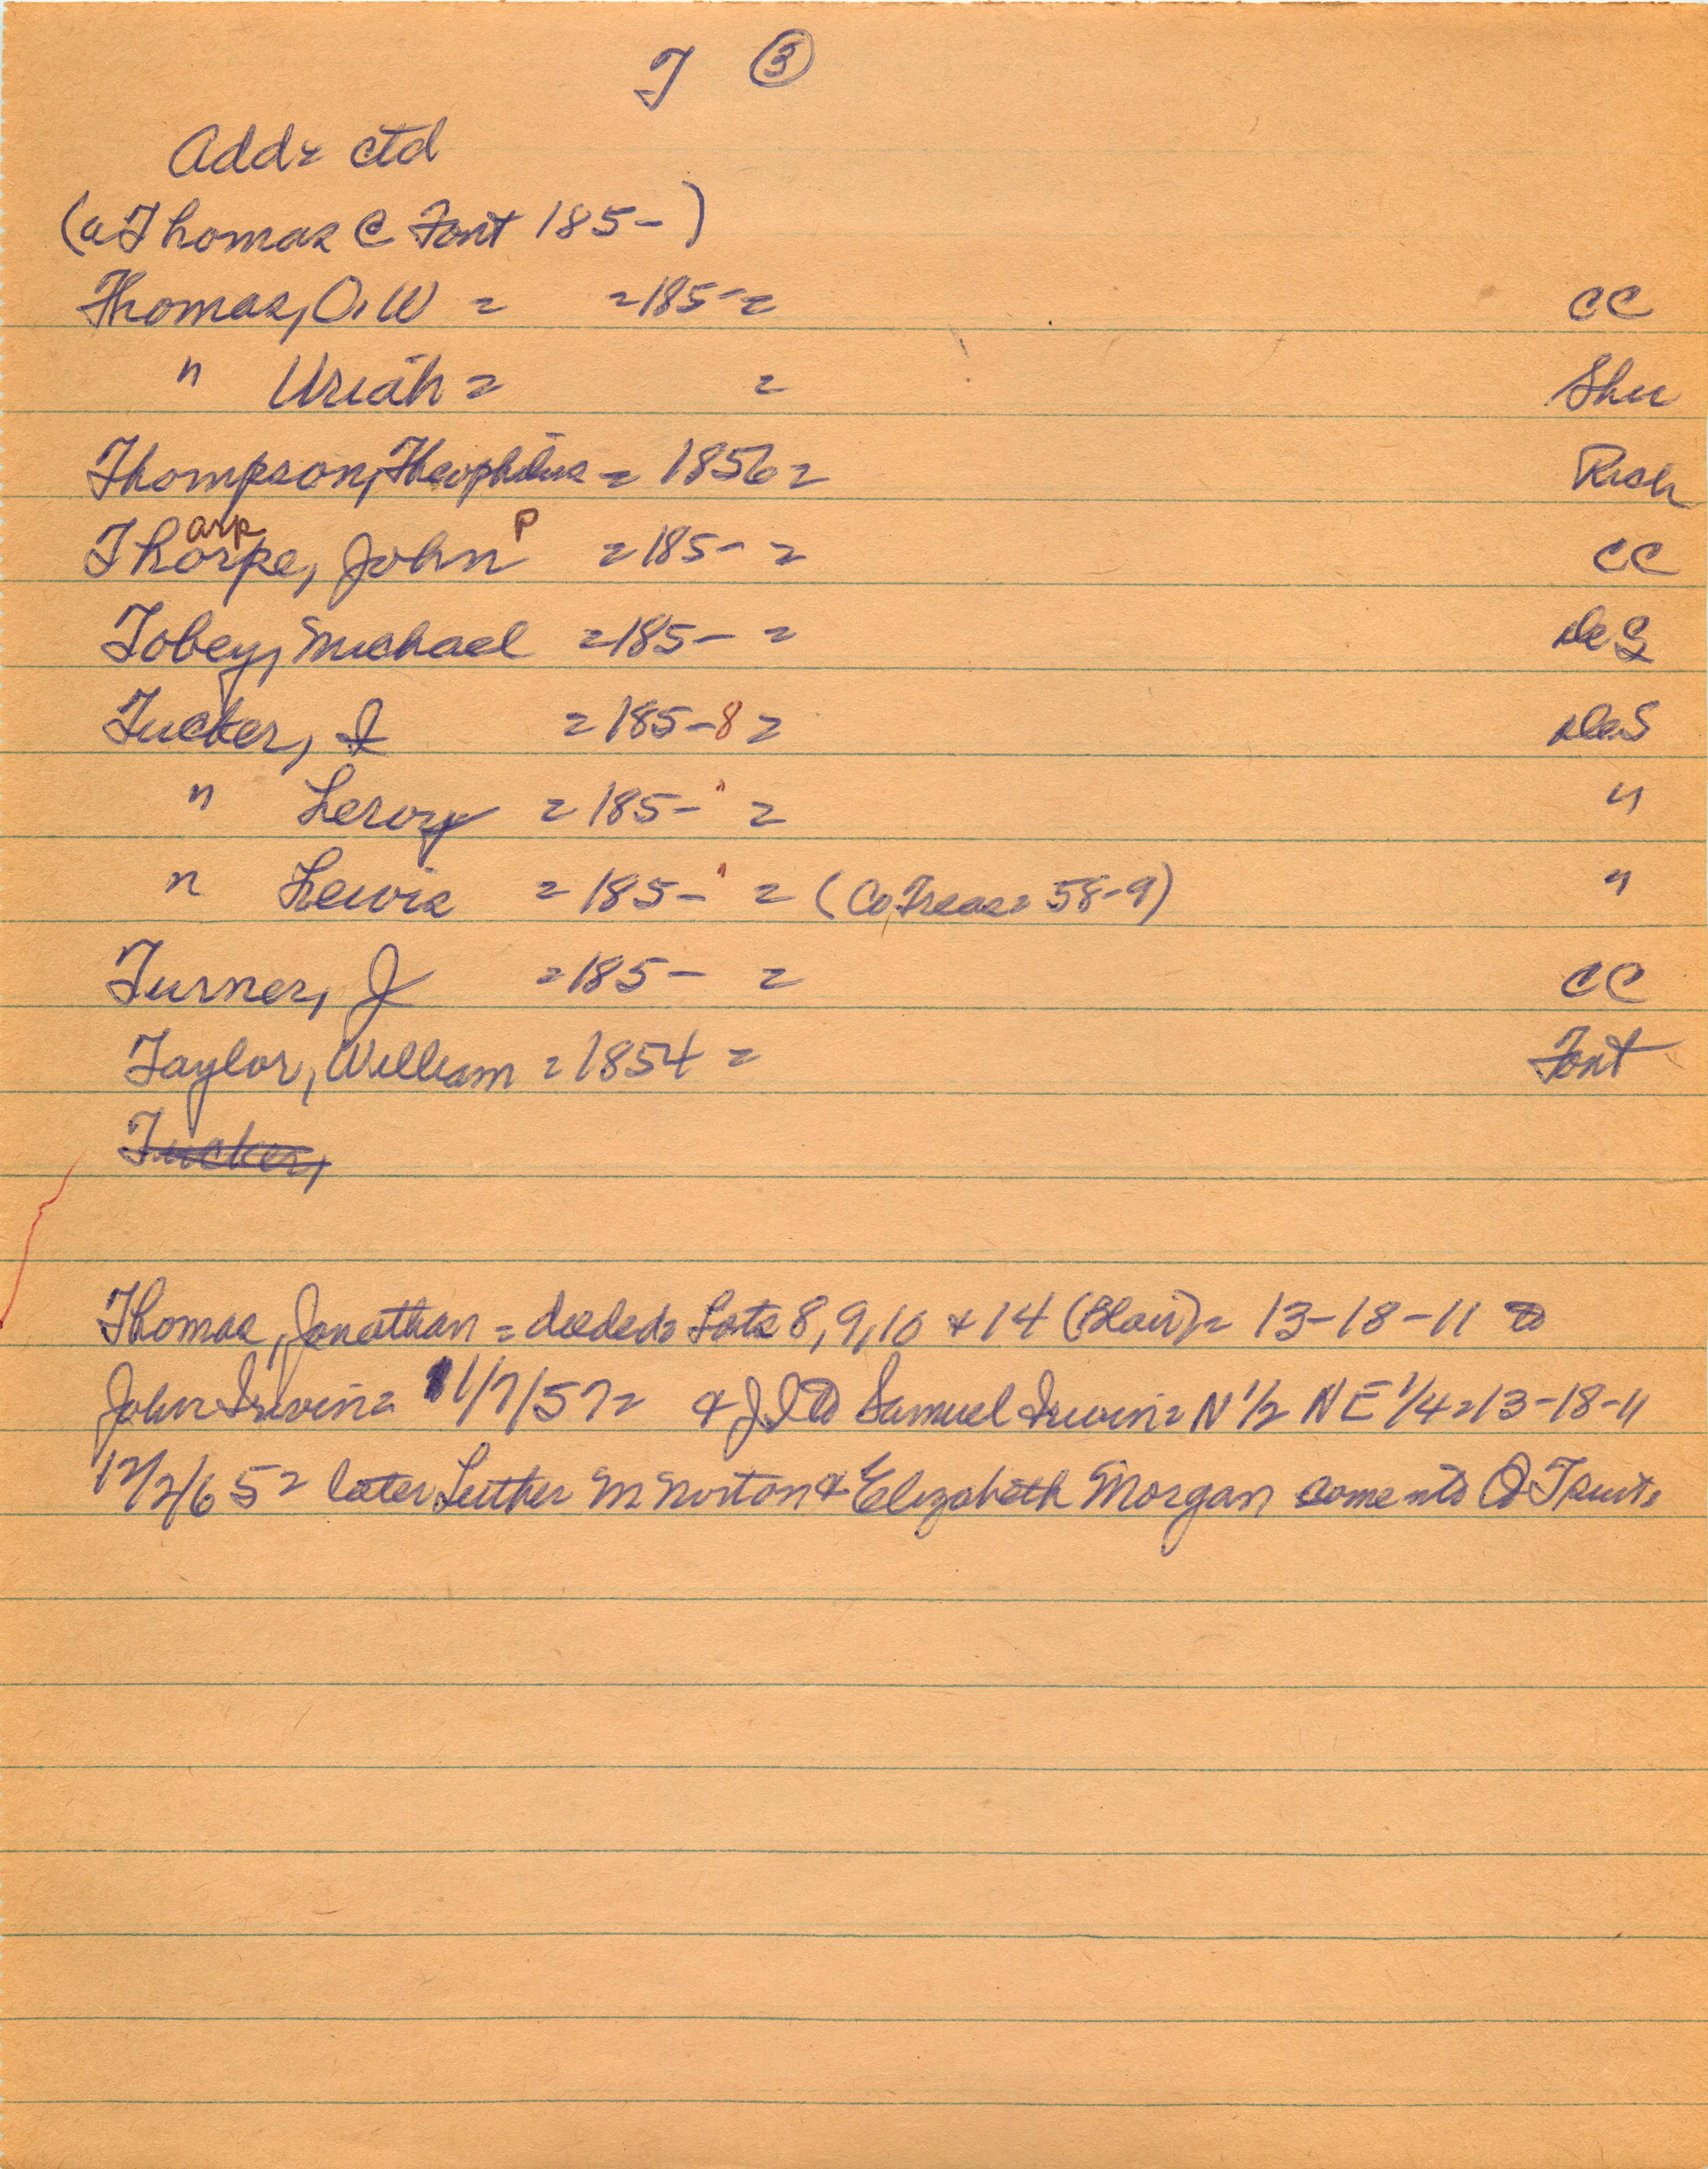 T ③
Add= ctd
(a Thomas C Font 185-)
Thomas, O.W = =185-= CC
" Uriah = = Shu
Thompson, Theophilus = 1856 = Rich
arp P
Thorpe, John =185- = CC
Tobey, Michael =185- = DeS
Tucker, I =185-8 = DeS
" Leroy =185-" = "
" Lewis =185-" = (Co Treas= 58-9) "
Turner, J =185- = CC
Taylor, William = 1854 = Font
Tucker,
Thomas, Jonathan = deeded= Lots 8, 9, 10 & 14 (Blair)= 13-18-11 to
John Irwin= 11/7/57= & JI to Samuel Irwin= N 1/2 NE 1/4=13-18-11
12/2/65= later Luther M Norton & Elizabeth Morgan came into